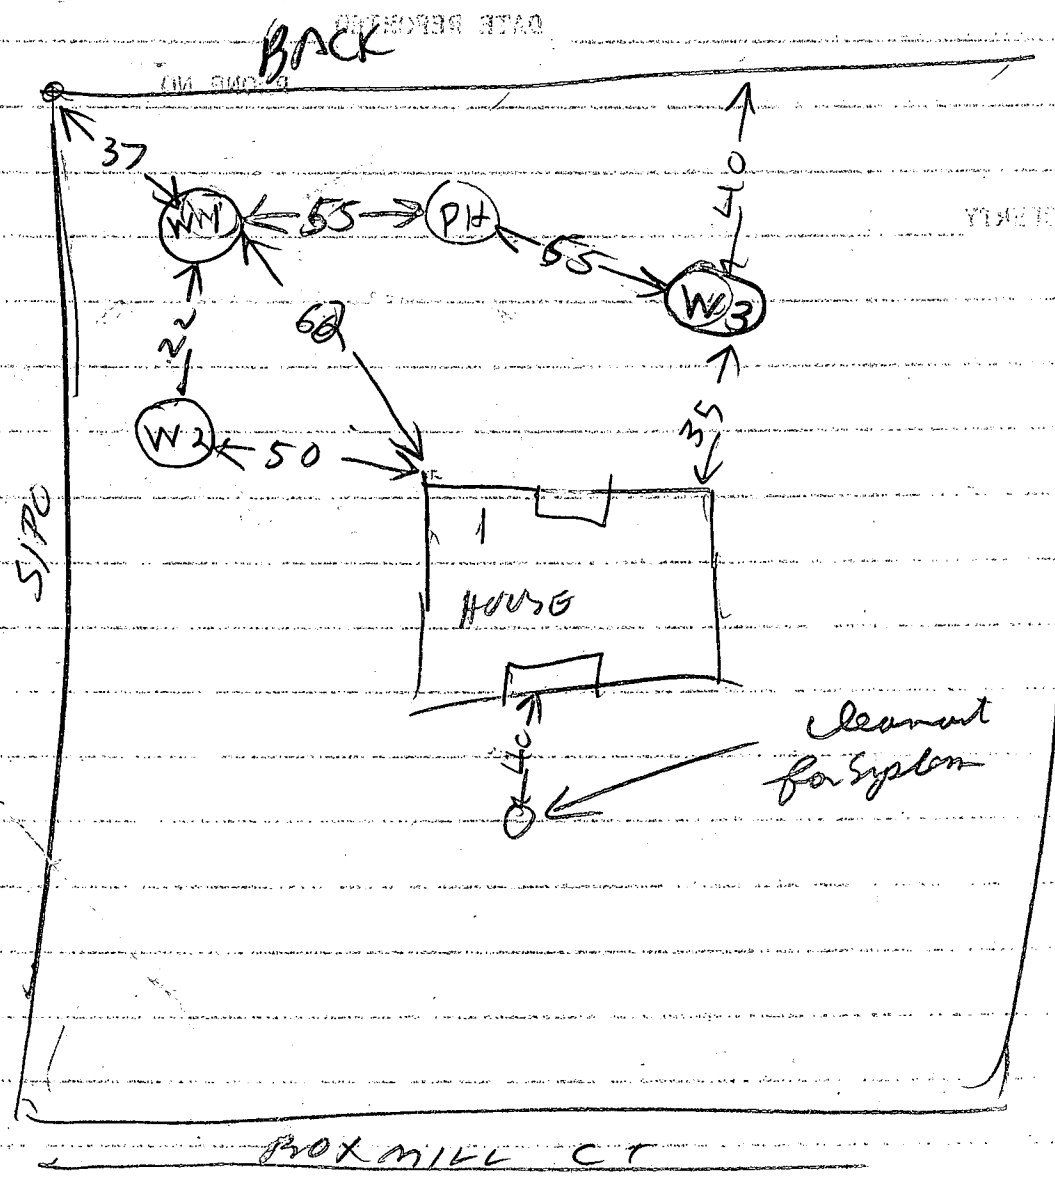 BACK
37
W1
55
PH
55
40
W3
22
62
35
W2
50
SIDE
1
HOUSE
40
Cleanout
for System
BOXMILL CT